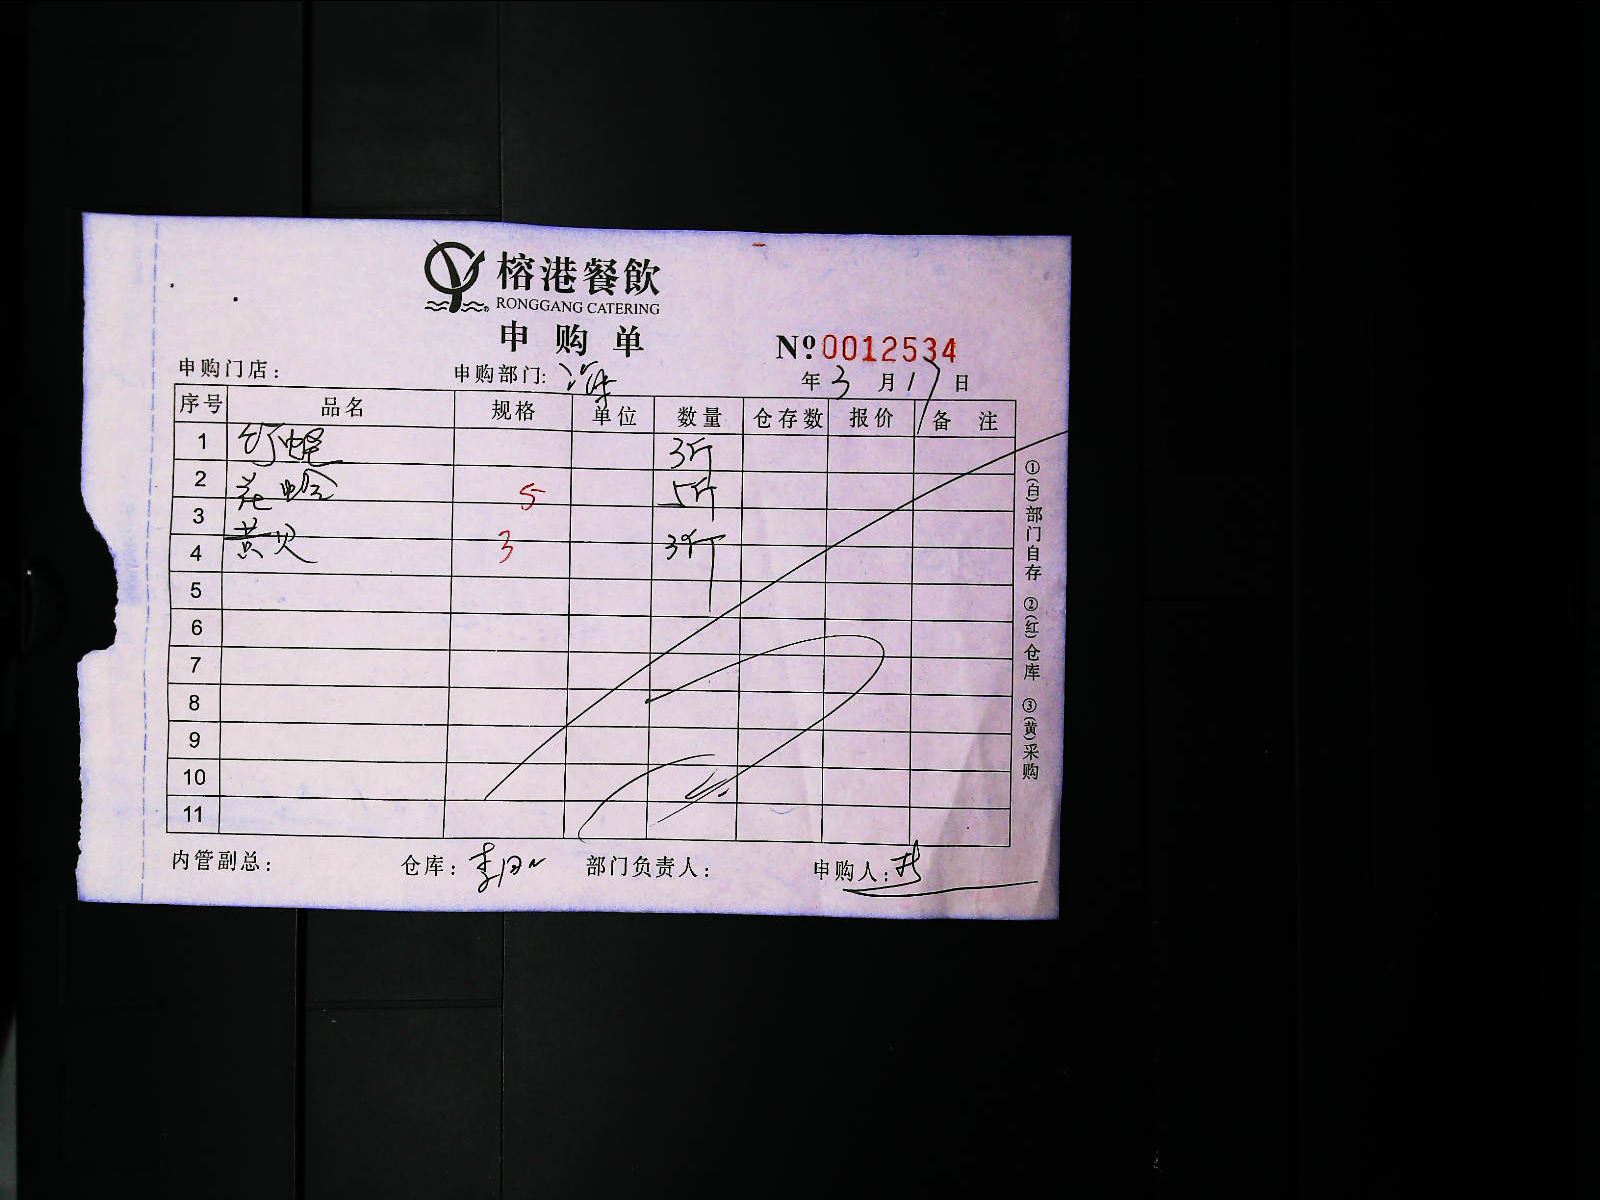 榕港餐飲
RONGGANG CATERING
申购单
№ 0012534
申购门店： 申购部门： 年 3 月 17 日
序号 品名 规格 单位 数量 仓存数 报价 备注
1 竹蛏 3斤
2 花蛤 5 5斤
3
4 黄贝 3 3斤
5
6
7
8
9
10
11
①(白)部门自存 ②(红)仓库 ③(黄)采购
内管副总： 仓库： 部门负责人： 申购人：